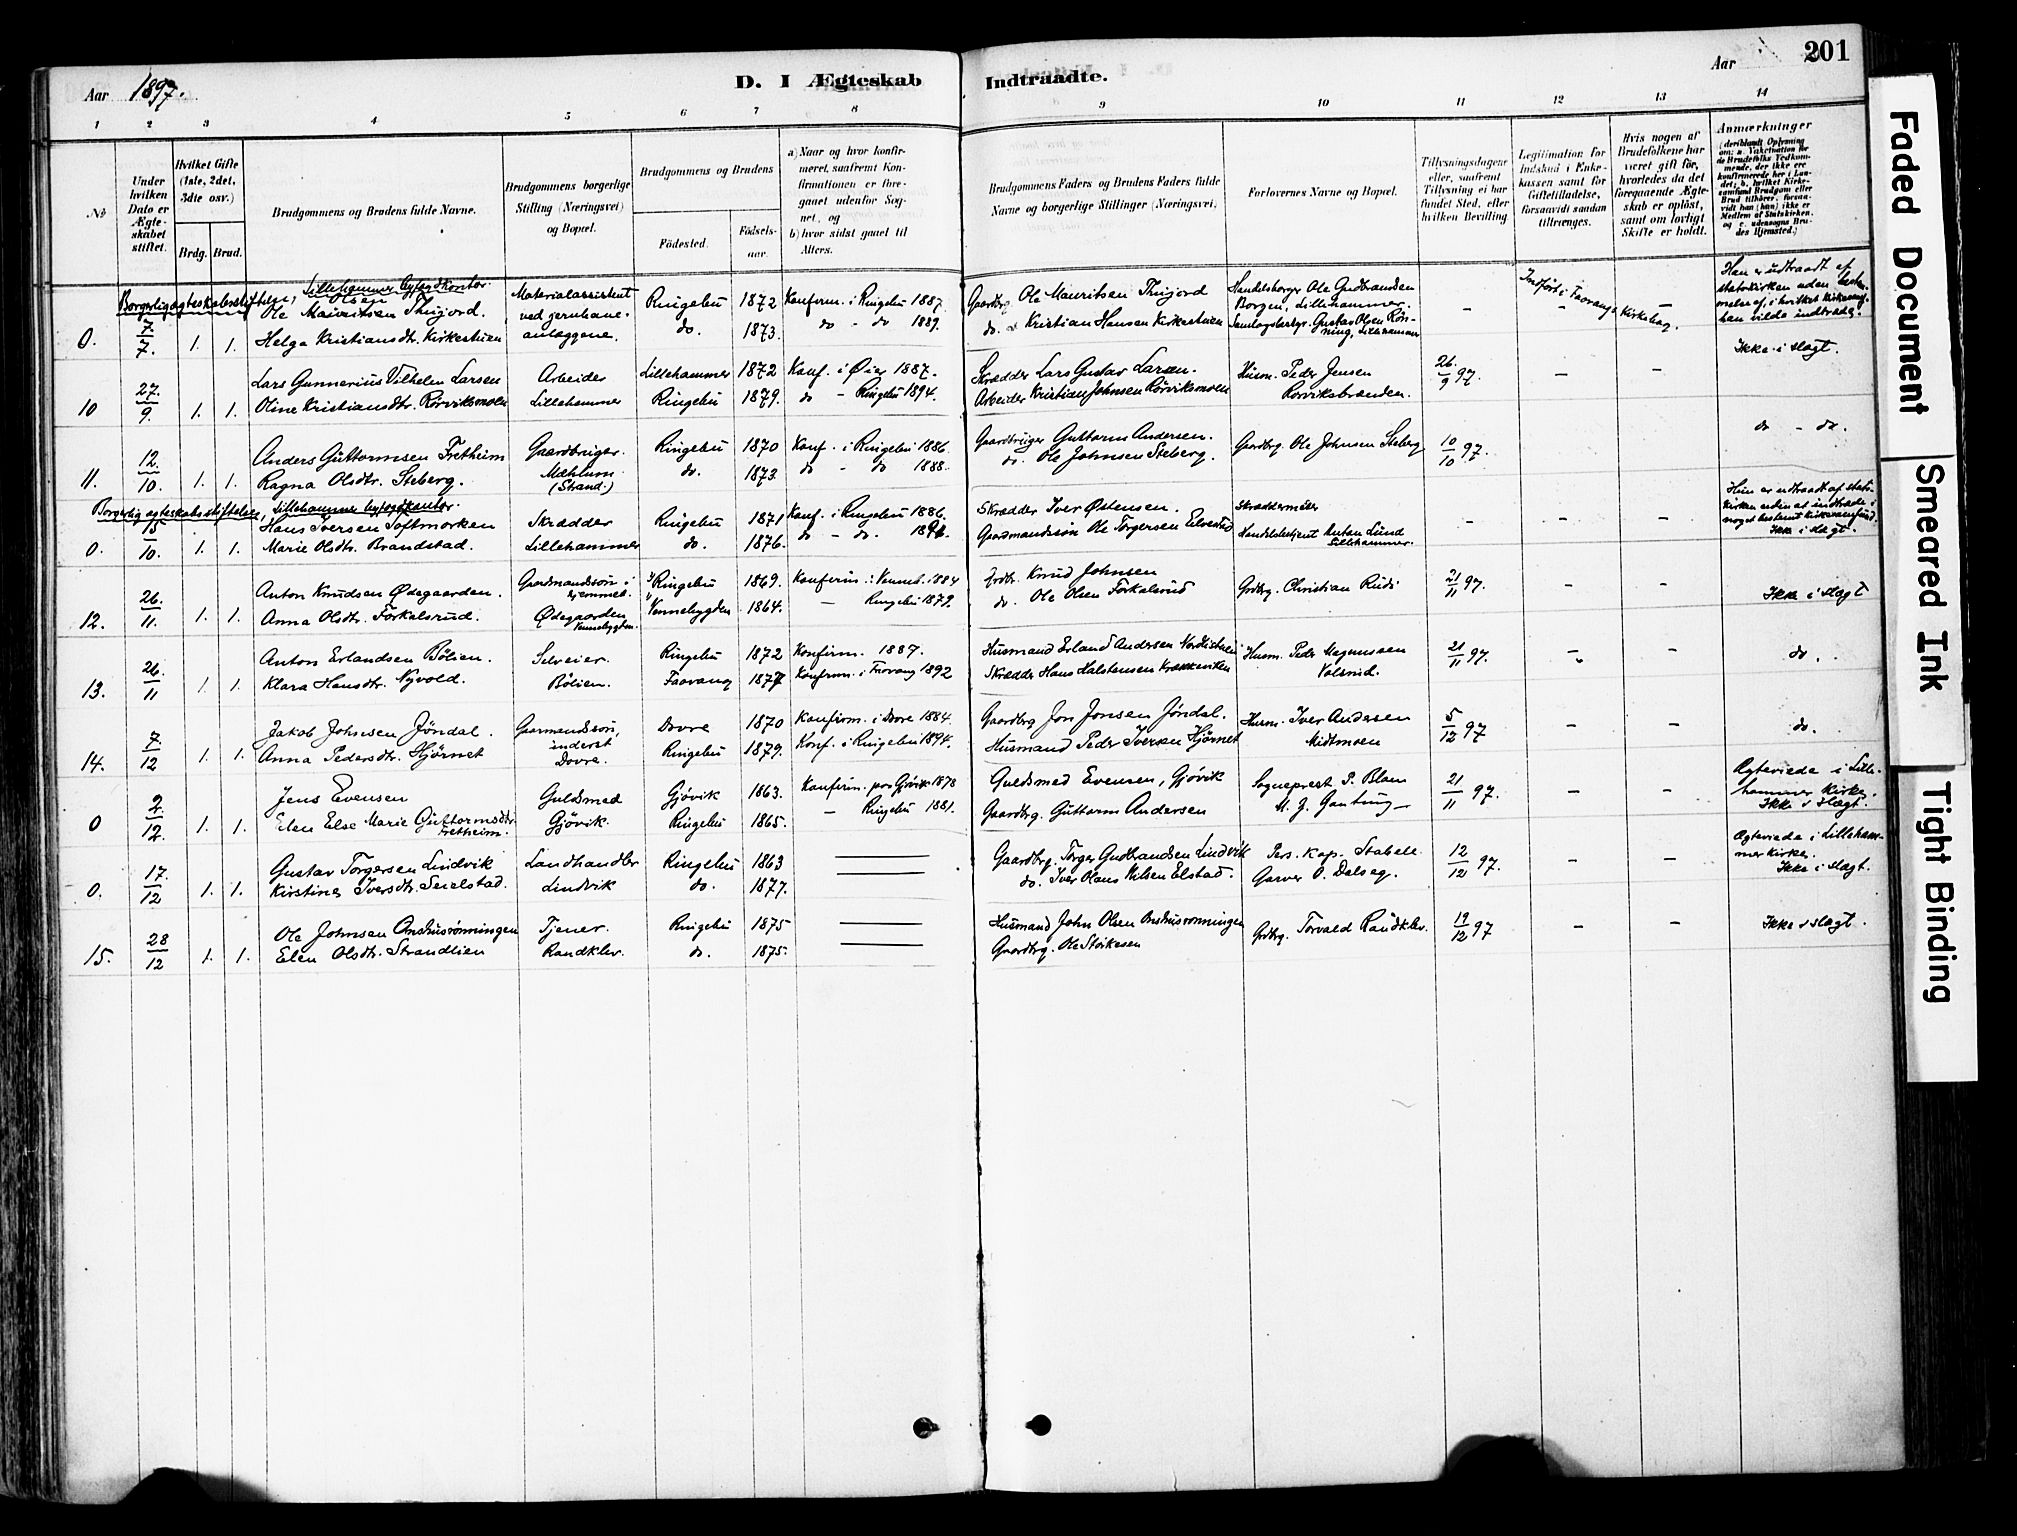 Aar 1897.
D. I Ægteskab Indtraadte.
Aar
201
1 2 3 4 5 6 7 8 9 10 11 12 13 14
No
Under hvilken Dato er Ægteskabet stiftet.
Hvilket Gifte (1ste, 2det, 3die osv.)
Brdg. Brud.
Brudgommens og Brudens fulde Navne.
Brudgommens borgerlige Stilling (Næringsvei) og Bopæl.
Brudgommens og Brudens
Fødested. Fødselsaar.
a) Naar og hvor konfirmeret, saafremt Konfirmationen er foregaaet udenfor Sognet, og
b) hvor sidst gaaet til Alters.
Brudgommens Faders og Brudens Faders fulde Navne og borgerlige Stillinger (Næringsvei)
Forlovernes Navne og Bopæl.
Tillysningsdagene eller, saafremt Tillysning ei har fundet Sted, efter hvilken Bevilling.
Legitimation for Indskud i Enkekassen samt for Giftetilladelse, forsaavidt saadan tiltrænges.
Hvis nogen af Brudefolkene har været gift før, hvorledes da det foregaaende Ægteskab er opløst, samt om lovligt Skifte er holdt.
Anmærkninger
Borgerlig ægteskabsstiftelse, Lillehammer byfogdkontor
0. 7/7. 1. 1. Ole Mauritsen Olsen Thujord. Materialassistent ved jernbaneanlæggene. Ringebu 1872 Konfirm. i Ringebu 1887. Gaardbrg Ole Mauritsen Thujord Handelsborger Ole Gudbrandsen Borgen, Lillehammer. - Indført i Faavangs Kirkebog. -
Helga Kristiansdtr. Kirkestuen do. 1873. do - do 1889. do. Kristian Hansen Kirkestuen Gustav Olsen Rønning, Lillehammer
Han er udtraadt af statskirken uden bestemmelse af, i hvilket kirkesamf. han vilde indtræde.
Ikke i slægt.
10 27./9. 1. 1. Lars Gunnerius Vilhelm Larsen Arbeider Lillehammer 1872 Konf. i Øier 1887. Skrædder Lars Gustav Larsen. Husm. Peder Jensen 26./9 97. - -
Oline Kristiansdtr. Rørviksmoen Lillehammer Ringebu 1879. do - Ringebu 1894. Arbeider Kristian Johnsen Rørviksmoen Rørviksbrænden.
do - do.
11. 12./10. 1. 1. Anders Guttormsen Fretheim Gaardbruger. Ringebu 1870 Konf. i Ringebu 1886. Gaardbruger Guttorm Andersen. Gaardbrg. Ole Johnsen Steberg 10/10 97. - -
Ragna Olsdtr. Steberg. Mæhlum (Strand.) do. 1873. do - do 1888. do. Ole Johnsen Steberg.
Borgerlig ægteskabsstiftelse, Lillehammer byfogdkontor.
0. 15/10. 1. 1. Hans Iversen Toftmorken Skrædder Ringebu 1871 Konf. i Ringebu 1886. Skrædder Iver Østensen. Skræddermester - - -
Marie Olsdtr. Brandstad. Lillehammer do. 1876. do - do. Gaardmandssøn Ole Torgersen Elvestad Handelsbetjent Anton Lund Lillehammer.
Hun er udtraadt af statskirken uden at indtræde i noget bestemt kirkesamfund.
Ikke i slægt.
12. 26./11. 1. 1. Anton Knudsen Ødegaarden. Gaardmandssøn i hjemmet. Ringebu 1869. Konfirm. i Venneb. 1884 Grdbr. Knud Johnsen Grdbrg. Christian Ruds 21/11 97. - - Ikke i slægt
Anna Olsdtr. Forkalsrud. Ødegaarden Vennebygden. Vennebygden 1864. - Ringebu 1879. do. Ole Olsen Forkalsrud
13. 26./11 1. 1. Anton Erlandsen Bølien. Selveier. Ringebu 1872 Konfirm. 1887. Husmand Erland Andersen Nordistuen Husm. Peder Magnussen 21/11 97. - - do.
Klara Hansdtr. Nyvold. Bølien. Faavang 1877 Konfirm. i Faavang 1892 Skrædder Hans Halstensen Krækkeviken Volsrud.
14. 7/12 1. 1. Jakob Johnsen Jøndal. Gaarmandssøn, inderst Dovre 1870 Konfirm. i Dovre 1884. Gaardbrg Jon Jonsen Jøndal. Husm. Iver Andersen 5/12 97 - - do.
Anna Pedersdtr. Hjørnet Dovre. Ringebu 1879. Konf. i Ringebu 1894. Husmand Peder Iversen Hjørnet Midtmoen
0 2/12. 1. 1. Jens Evensen Guldsmed Gjøvik 1863. Konfirm. paa Gjøvik 1878 Guldsmed Evensen, Gjøvik Sogneprest P. Blom 21/11 97. - -
Elen Else Marie Guttormsdtr. Fretheim. Gjøvik. Ringebu 1865. - Ringebu 1881. Gaardbrg. Guttorm Andersen
Ægteviede i Lillehammer Kirke.
Ikke i slægt.
0. 17./12 1. 1. Gustav Torgersen Lindvik Landhandler Ringebu 1863 Gaardbrg. Torger Gudbrandsen Lindvik Pers. Kap. Stabell 12/12 97. - -
Kirstine Iversdtr. Seielstad. Lindvik do. 1877. do. Iver Hans Nilsen Elstad. Garver O. Dalseg.
Ægteviede i Lillehammer Kirke.
Ikke i slægt.
15. 28/12 1. 1. Ole Johnsen Onshusrønningen Tjener. Ringebu 1875 Husmand John Olsen Onshusrønningen Grdbrg. Torvald Randklev. 19/12 97 - - Ikke i slægt.
Elen Olsdtr. Strandlien Randklev. do. 1875. Gaardbrg. Ole
Faded Document
Smeared Ink
Tight Binding